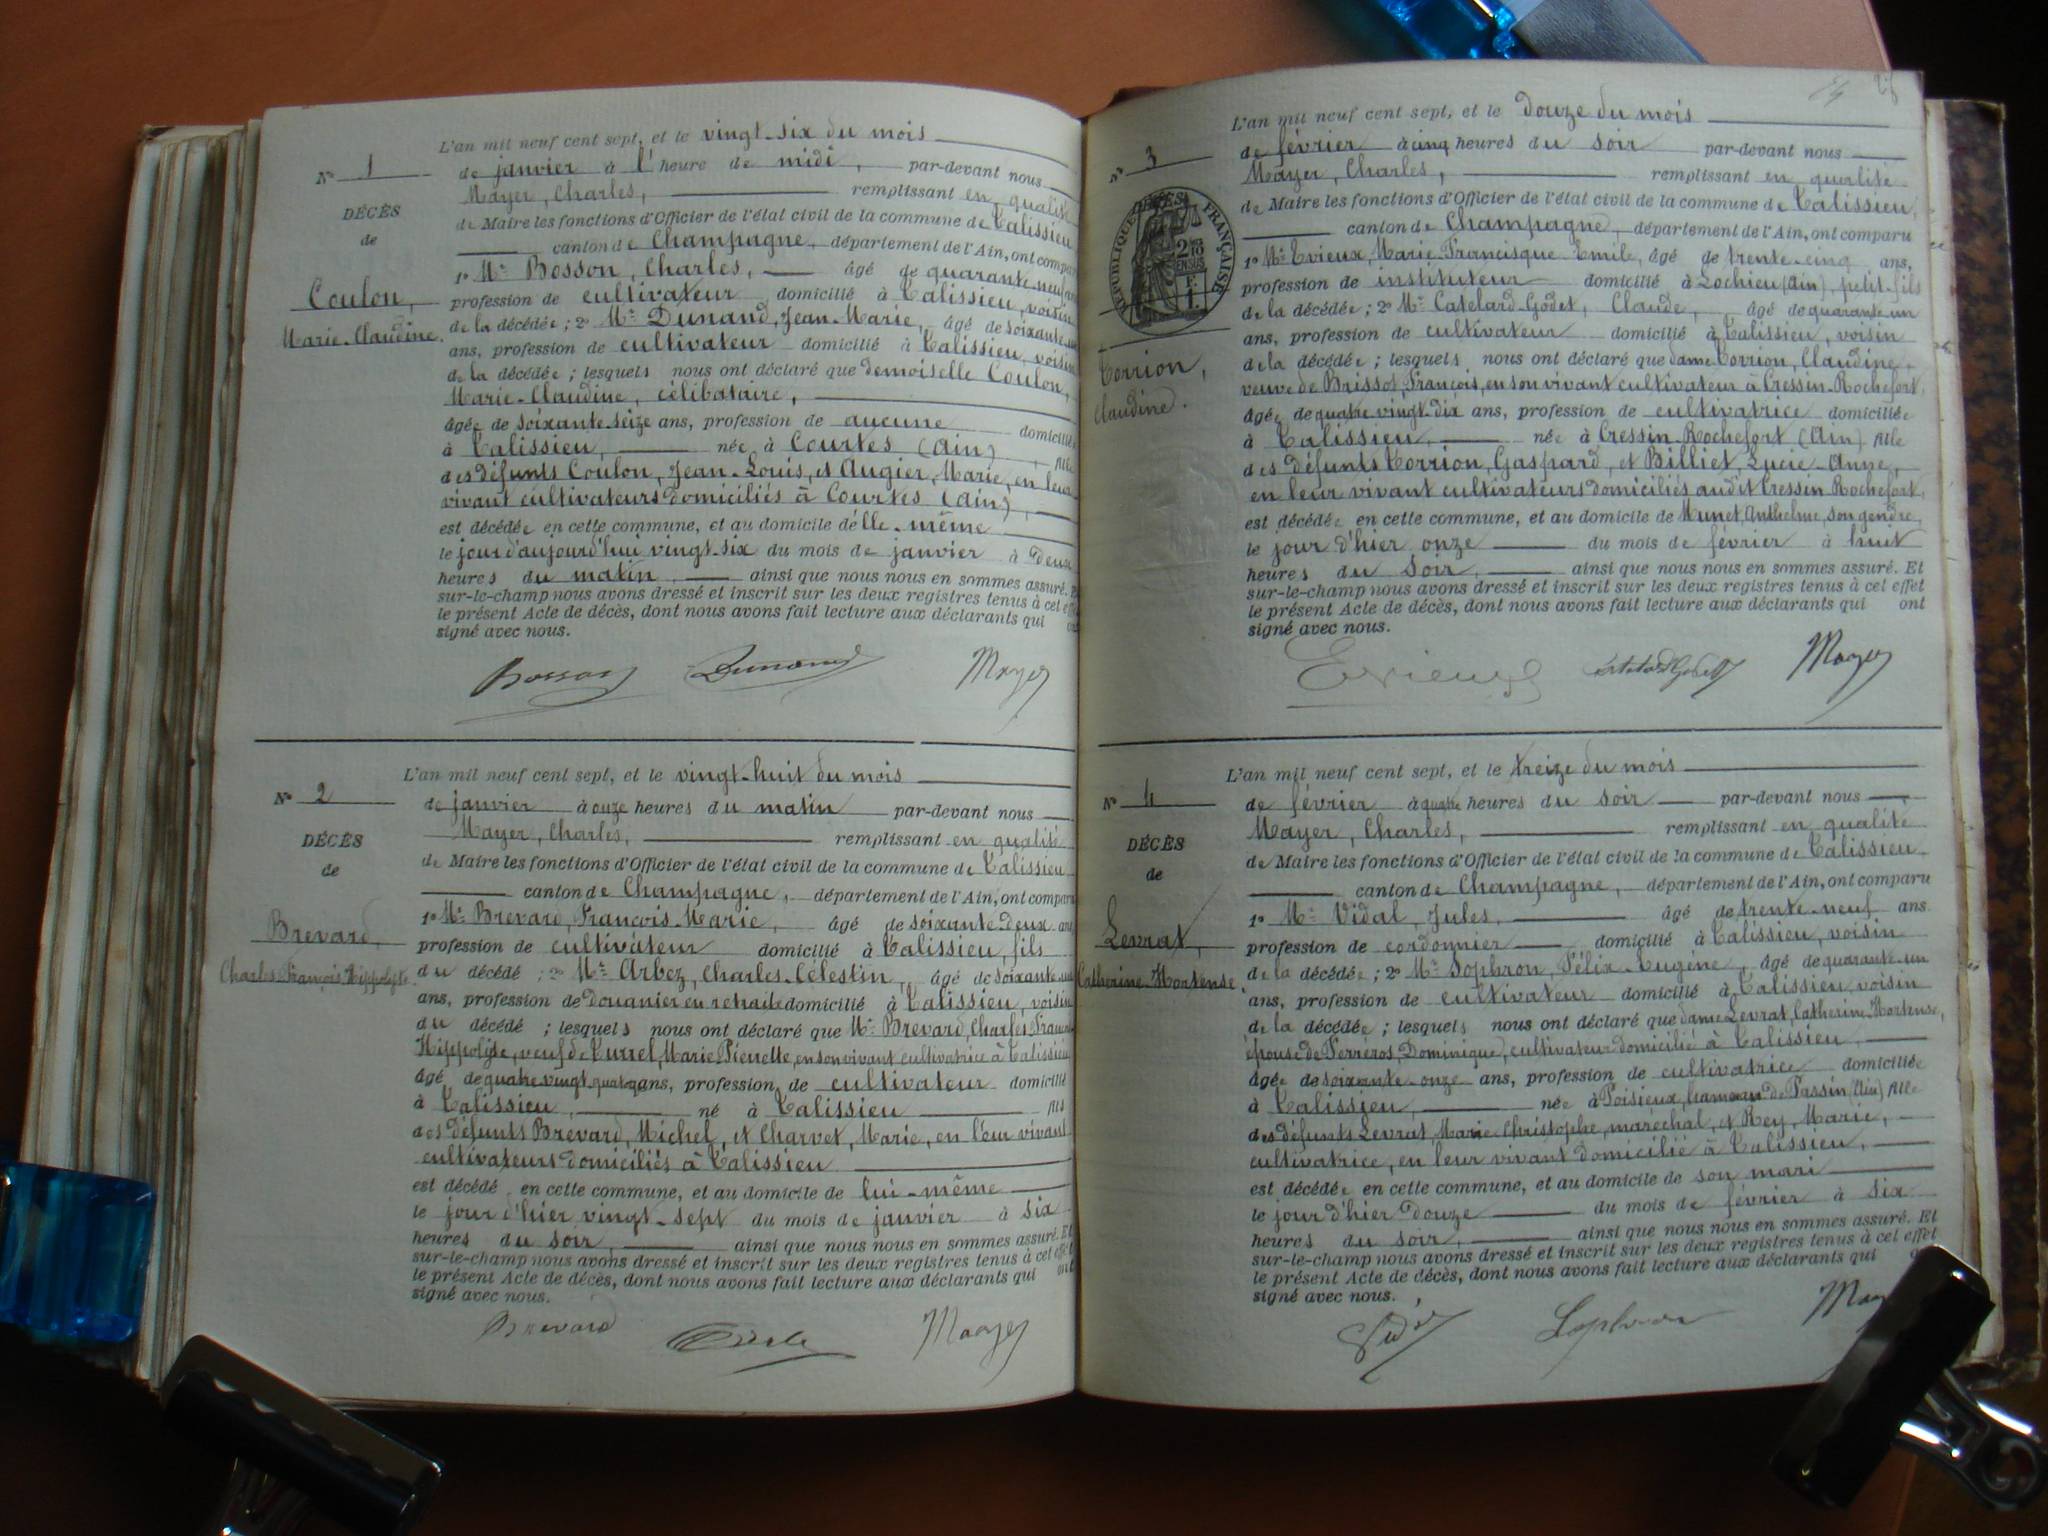 L'an mil neuf cent sept, et le vingt-six du mois
N° 1
de janvier à l'heure de midi, par-devant nous
Mayer, Charles, remplissant en qualité
DÉCÈS
de Maire les fonctions d'Officier de l'état civil de la commune de Talissieu
de
canton de Champagne, département de l'Ain, ont comparu
1° Mr Bosson, Charles, âgé de quarante-neuf ans
Coulon,
profession de cultivateur domicilié à Talissieu, voisin
Marie-Claudine.
de la décédée ; 2° Mr Dunand, Jean-Marie, âgé de soixante-un
ans, profession de cultivateur domicilié à Talissieu, voisin
de la décédée ; lesquels nous ont déclaré que demoiselle Coulon,
Marie-Claudine, célibataire,
âgée de soixante-seize ans, profession de aucune domiciliée
à Talissieu, née à Courtes (Ain) fille
des défunts Coulon, Jean-Louis, et Augier, Marie, en leur
vivant cultivateurs domiciliés à Courtes (Ain),
est décédée en cette commune, et au domicile d'elle-même
le jour d'aujourd'hui vingt-six du mois de janvier à deux
heures du matin, ainsi que nous nous en sommes assuré. Et
sur-le-champ nous avons dressé et inscrit sur les deux registres tenus à cet effet
le présent Acte de décès, dont nous avons fait lecture aux déclarants qui ont
signé avec nous.
Bosson Dunand Mayer
L'an mil neuf cent sept, et le vingt-huit du mois
N° 2
de janvier à onze heures du matin par-devant nous
Mayer, Charles, remplissant en qualité
DÉCÈS
de Maire les fonctions d'Officier de l'état civil de la commune de Talissieu
de
canton de Champagne, département de l'Ain, ont comparu
1° Mr Brevard, François-Marie, âgé de soixante-deux ans
Brevard,
profession de cultivateur domicilié à Talissieu, fils
Charles-François-Hippolyte.
du décédé ; 2° Mr Arbez, Charles-Célestin, âgé de soixante-un
ans, profession de douanier en retraite domicilié à Talissieu, voisin
du décédé ; lesquels nous ont déclaré que Mr Brevard, Charles François
Hippolyte, veuf de Marie-Pierrette, en son vivant cultivatrice à Talissieu,
âgé de quatre-vingt-quatorze ans, profession de cultivateur domicilié
à Talissieu, né à Talissieu fils
des défunts Brevard, Michel, et Charvet, Marie, en leur vivant
cultivateurs domiciliés à Talissieu
est décédé en cette commune, et au domicile de lui-même
le jour d'hier vingt-sept du mois de janvier à six
heures du soir, ainsi que nous nous en sommes assuré. Et
sur-le-champ nous avons dressé et inscrit sur les deux registres tenus à cet effet
le présent Acte de décès, dont nous avons fait lecture aux déclarants qui ont
signé avec nous.
Brevard Mayer
L'an mil neuf cent sept, et le douze du mois
N° 3
de février à cinq heures du soir par-devant nous
Mayer, Charles, remplissant en qualité
DÉCÈS
RÉPUBLIQUE FRANÇAISE
de Maire les fonctions d'Officier de l'état civil de la commune de Talissieu,
canton de Champagne, département de l'Ain, ont comparu
1° Mr Evieux, Marie-Francisque Emile, âgé de trente-cinq ans,
profession de instituteur domicilié à Lochieu (Ain), petit-fils
de la décédée ; 2° Mr Catelard-Godet, Claude, âgé de quarante-un
ans, profession de cultivateur domicilié à Talissieu, voisin
Torrion,
Claudine.
de la décédée ; lesquels nous ont déclaré que dame Torrion, Claudine,
veuve de Brissot, François, en son vivant cultivateur à Cressin-Rochefort,
âgée de quatre-vingt-dix ans, profession de cultivatrice domiciliée
à Talissieu, née à Cressin-Rochefort (Ain) fille
des défunts Torrion, Gaspard, et Billiet, Lucie-Anne,
en leur vivant cultivateurs domiciliés audit Cressin-Rochefort,
est décédée en cette commune, et au domicile de Munet, Anthelme, son gendre,
le jour d'hier onze du mois de février à huit
heures du soir, ainsi que nous nous en sommes assuré. Et
sur-le-champ nous avons dressé et inscrit sur les deux registres tenus à cet effet
le présent Acte de décès, dont nous avons fait lecture aux déclarants qui ont
signé avec nous.
Evieux Catelard Godet Mayer
L'an mil neuf cent sept, et le treize du mois
N° 4
de février à quatre heures du soir par-devant nous
Mayer, Charles, remplissant en qualité
DÉCÈS
de Maire les fonctions d'Officier de l'état civil de la commune de Talissieu
de
canton de Champagne, département de l'Ain, ont comparu
1° Mr Vidal, Jules, âgé de trente-neuf ans
Levrat,
profession de cordonnier domicilié à Talissieu, voisin
Catherine-Hortense.
de la décédée ; 2° Mr Sophron, Félix-Eugène, âgé de quarante-un
ans, profession de cultivateur domicilié à Talissieu, voisin
de la décédée ; lesquels nous ont déclaré que dame Levrat, Catherine-Hortense,
épouse de Ferréros, Dominique, cultivateur domicilié à Talissieu,
âgée de soixante-onze ans, profession de cultivatrice domiciliée
à Talissieu, née à Poisieux, hameau de Passin, (Ain) fille
des défunts Levrat, Marie-Christophe, maréchal, et Rey, Marie,
cultivatrice, en leur vivant domicilié à Talissieu,
est décédée en cette commune, et au domicile de son mari
le jour d'hier douze du mois de février à six
heures du soir, ainsi que nous nous en sommes assuré. Et
sur-le-champ nous avons dressé et inscrit sur les deux registres tenus à cet effet
le présent Acte de décès, dont nous avons fait lecture aux déclarants qui
signé avec nous.
Vidal Sophron